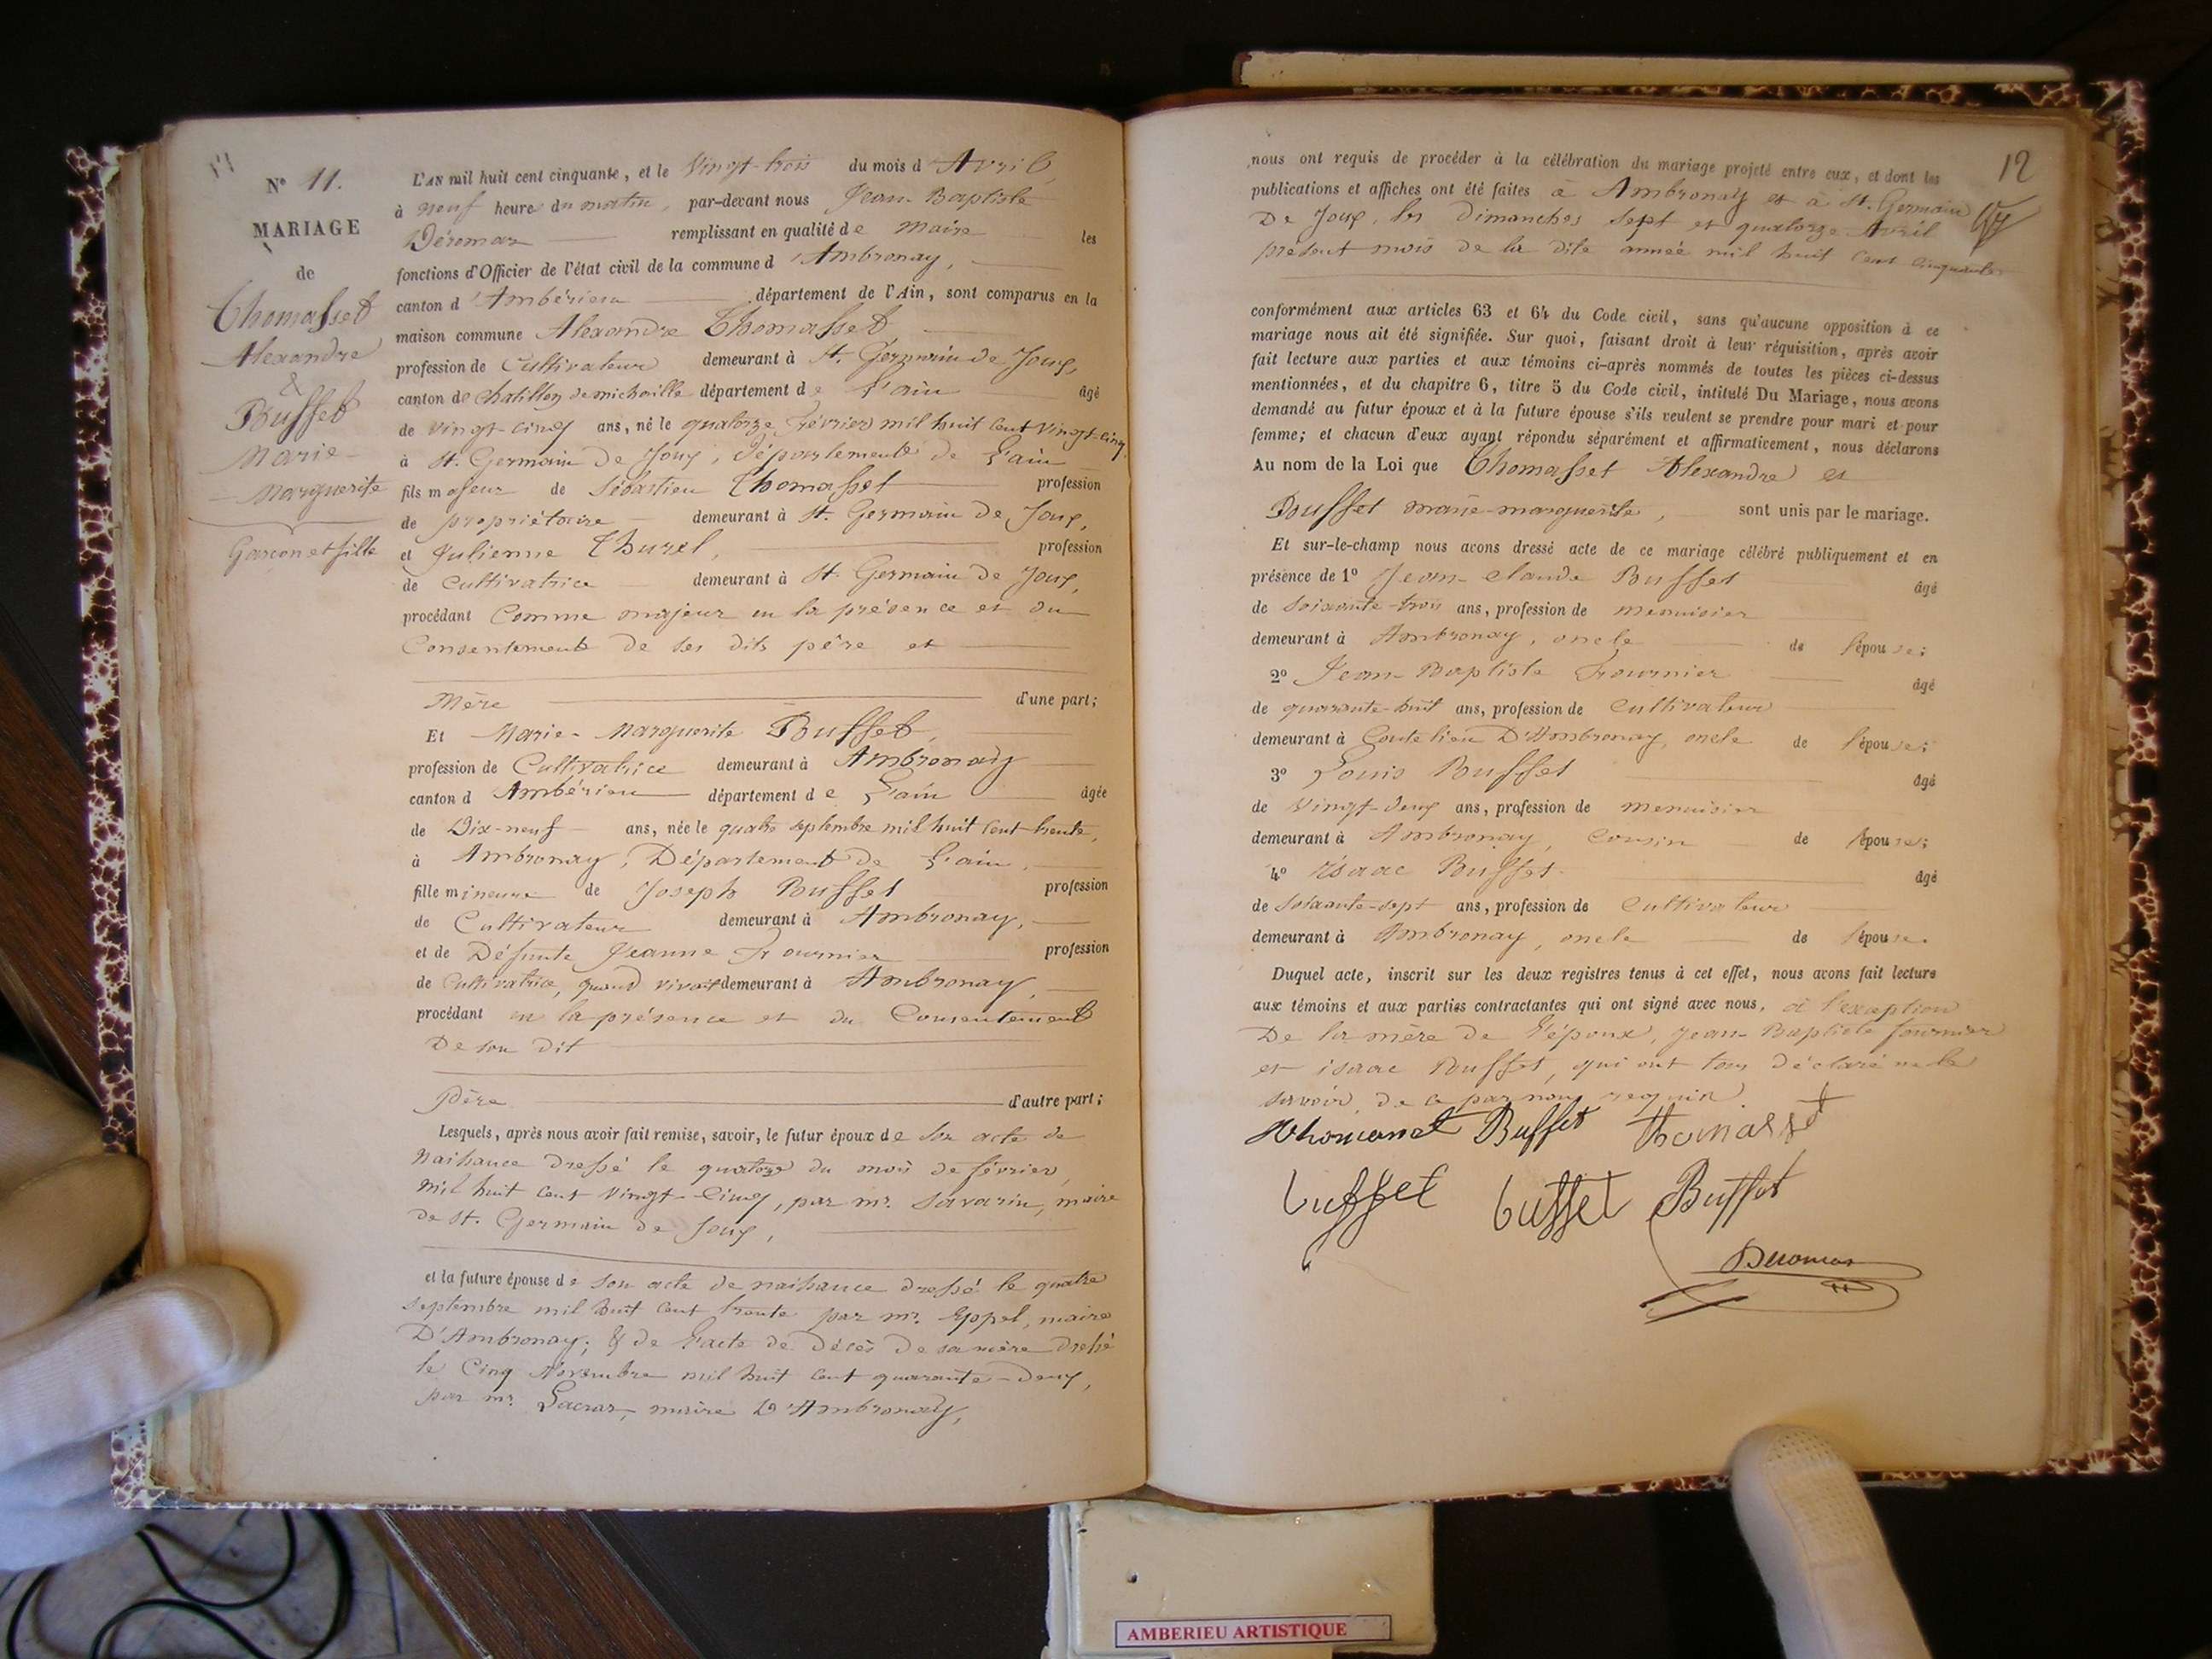 N° 11.
MARIAGE
de
Thomasset
Alexandre
&
Buffet
Marie-
Marguerite
Garçon et fille
L'AN mil huit cent cinquante, et le Vingt-trois du mois d'Avril,
à neuf heures du matin, par-devant nous Jean Baptiste
Déromas remplissant en qualité de Maire les
fonctions d'Officier de l'état civil de la commune d'Ambronay,
canton d'Ambérieu département de l'Ain, sont comparus en la
maison commune Alexandre Thomasset
profession de Cultivateur demeurant à St. Germain de Joux,
canton de Chatillon de michaille département de l'ain âgé
de vingt-cinq ans, né le quatorze Février mil huit Cent Vingt-cinq,
à St. Germain de Joux, Département de l'ain
fils majeur de Sébastien Thomasset profession
de propriétaire demeurant à St. Germain de Joux,
et Julienne Thurel, profession
de Cultivatrice demeurant à St. Germain de Joux,
procédant Comme majeur en la présence et du
Consentement de ses dits père et
Mère d'une part;
Et Marie-Marguerite Buffet,
profession de Cultivatrice demeurant à Ambronay
canton d'Ambérieu département de l'ain âgée
de Dix-neuf ans, née le quatre septembre mil huit Cent trente,
à Ambronay, Département de l'ain,
fille mineure de Joseph Buffet profession
de Cultivateur demeurant à Ambronay,
et de Défunte Jeanne Fournier profession
de Cultivatrice, quand vivait demeurant à Ambronay,
procédant en la présence et du Consentement
De son dit
Père d'autre part;
Lesquels, après nous avoir fait remise, savoir, le futur époux de son acte de
Naissance dressé le quatorze du mois de février
mil huit cent vingt-cinq, par mr. Savarin, maire
de St. Germain de Joux,
et la future épouse de son acte de naissance dressé le quatre
septembre mil huit cent trente par mr. maire
D'Ambronay; & de l'acte de décès de sa mère dressé
le Cinq Novembre mil huit cent quarante-deux,
par mr. maire D'Ambronay,
12
nous ont requis de procéder à la célébration du mariage projeté entre eux, et dont les
publications et affiches ont été faites à Ambronay et à St. Germain
De Joux, les Dimanches sept et quatorze Avril
présent mois de la dite année mil huit cent cinquante
conformément aux articles 63 et 64 du Code civil, sans qu'aucune opposition à ce
mariage nous ait été signifiée. Sur quoi, faisant droit à leur réquisition, après avoir
fait lecture aux parties et aux témoins ci-après nommés de toutes les pièces ci-dessus
mentionnées, et du chapitre 6, titre 5 du Code civil, intitulé Du Mariage, nous avons
demandé au futur époux et à la future épouse s'ils veulent se prendre pour mari et pour
femme; et chacun d'eux ayant répondu séparément et affirmativement, nous déclarons
Au nom de la Loi que Thomasset Alexandre et
Buffet marie-marguerite, sont unis par le mariage.
Et sur-le-champ nous avons dressé acte de ce mariage célébré publiquement et en
présence de 1° Jean-Claude Buffet âgé
de soixante-trois ans, profession de menuisier
demeurant à Ambronay, oncle de l'épouse;
2° Jean-Baptiste Fournier âgé
de quarante-huit ans, profession de Cultivateur
demeurant à Coutelieu D'Ambronay, oncle de l'épouse;
3° Louis Buffet âgé
de Vingt-deux ans, profession de menuisier
demeurant à Ambronay, Cousin de l'épouse;
4° Isaac Buffet âgé
de Soixante-sept ans, profession de Cultivateur
demeurant à Ambronay, oncle de l'épouse.
Duquel acte, inscrit sur les deux registres tenus à cet effet, nous avons fait lecture
aux témoins et aux parties contractantes qui ont signé avec nous, à l'exception
De la mère de l'époux, Jean-Baptiste fournier
et isaac Buffet, qui ont tous déclaré ne le
savoir, de ce par nous requis.
Thomasset Buffet thomasset
buffet buffet Buffet
Deromas
AMBERIEU ARTISTIQUE